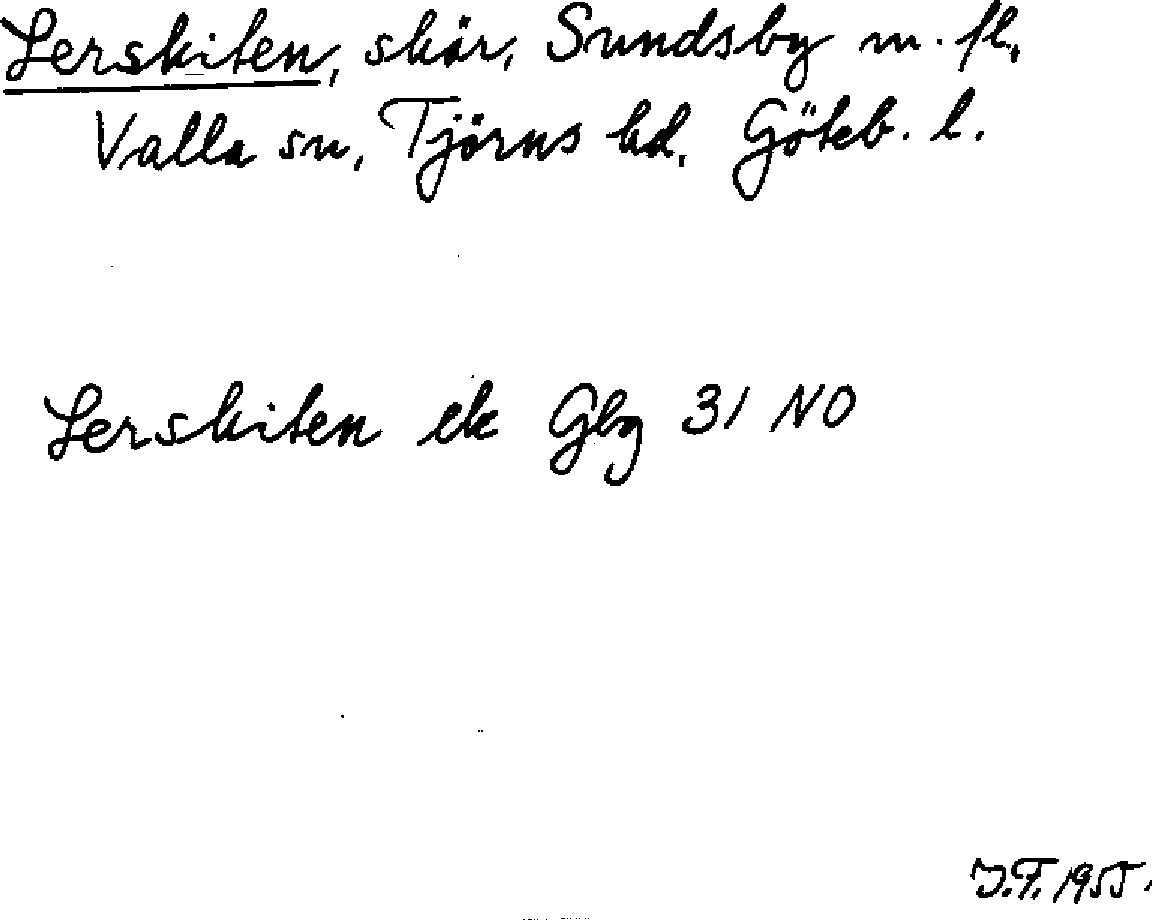 Lerskiten, skär, Sundsby m. fl.
Valla sn, Tjörns hd, Göteb. l.
Lerskiten ek Gbg 31 NO
J.F. 1955.